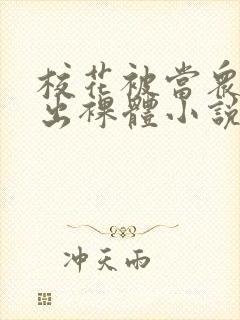 校花被當眾
出裸體小說
冲天雨